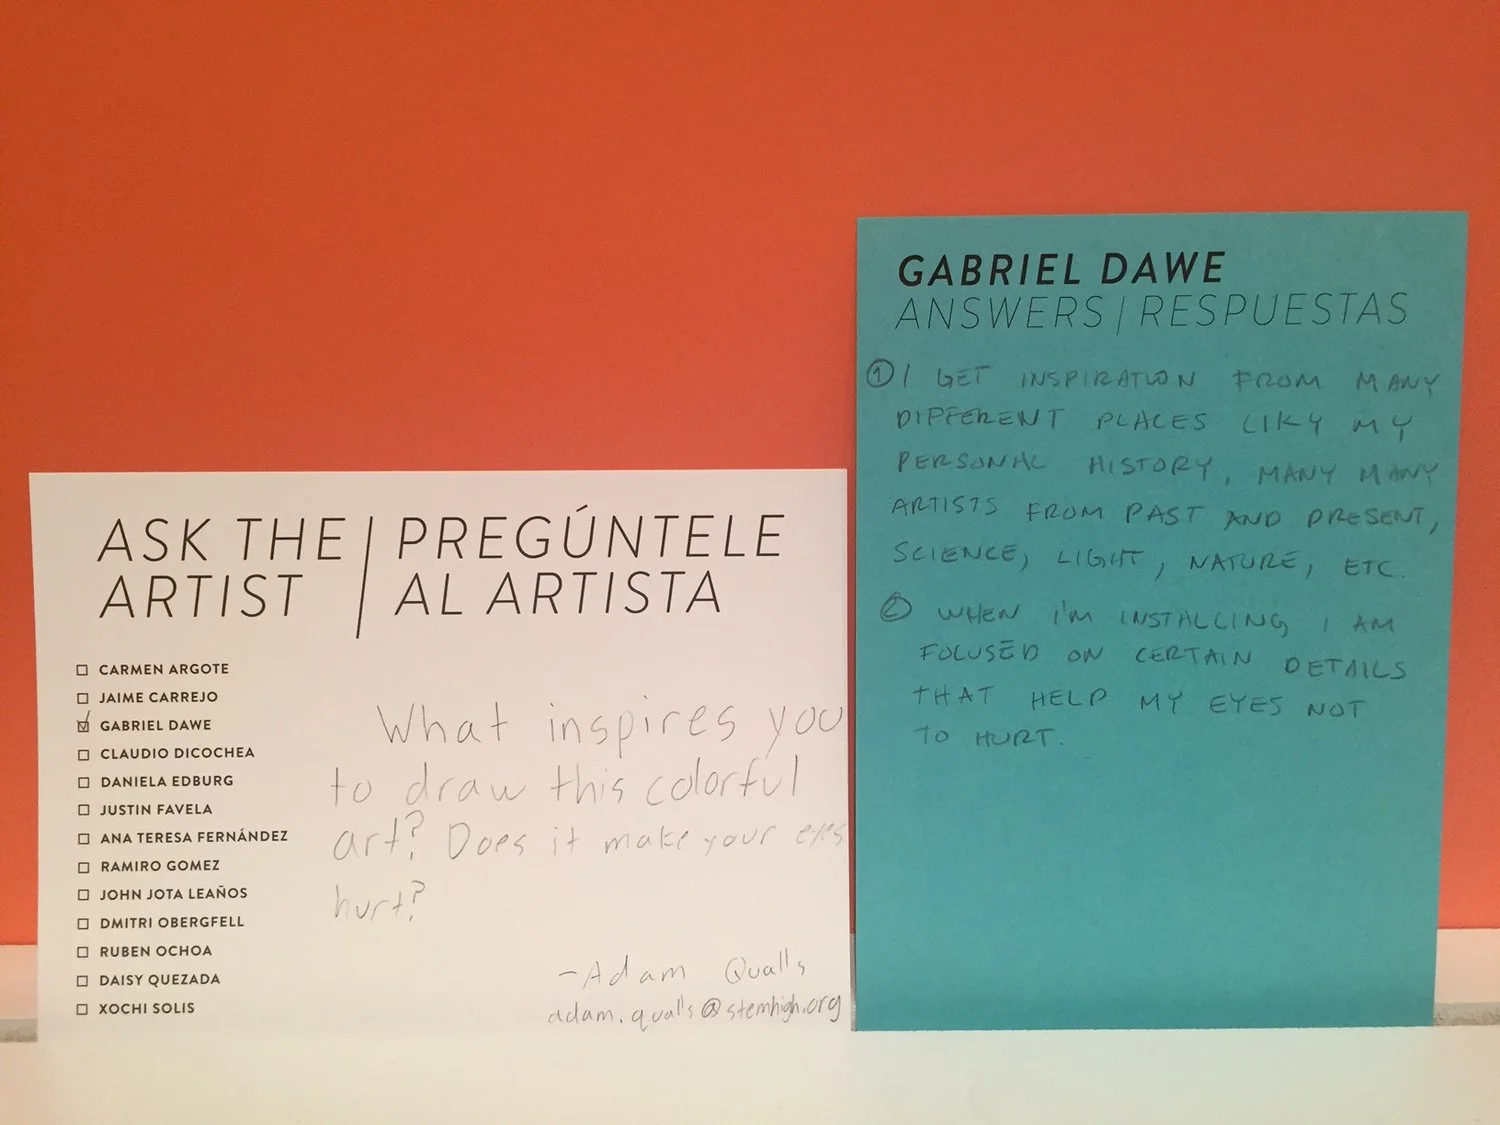 ASK THE
ARTIST
PREGÚNTELE
AL ARTISTA
CARMEN ARGOTE
JAIME CARREJO
GABRIEL DAWE
CLAUDIO DICOCHEA
DANIELA EDBURG
JUSTIN FAVELA
ANA TERESA FERNÁNDEZ
RAMIRO GOMEZ
JOHN JOTA LEAÑOS
DMITRI OBERGFELL
RUBEN OCHOA
DAISY QUEZADA
XOCHI SOLIS
What inspires you
to draw this colorful
art? Does it make your eyes
hurt?
-Adam Qualls
adam.qualls@stemhigh.org
GABRIEL DAWE
ANSWERS | RESPUESTAS
① I GET INSPIRATION FROM MANY
DIFFERENT PLACES LIKY MY
PERSONAL HISTORY, MANY MANY
ARTISTS FROM PAST AND PRESENT,
SCIENCE, LIGHT, NATURE, ETC.
② WHEN I'M INSTALLING I AM
FOCUSED ON CERTAIN DETAILS
THAT HELP MY EYES NOT
TO HURT.